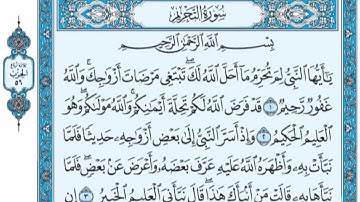 سُورَةُ التَّحْرِيمِ
بِسْمِ اللَّهِ الرَّحْمَٰنِ الرَّحِيمِ
يَٰٓأَيُّهَا ٱلنَّبِىُّ لِمَ تُحَرِّمُ مَآ أَحَلَّ ٱللَّهُ لَكَ ۖ تَبْتَغِى مَرْضَاتَ أَزْوَٰجِكَ ۚ وَٱللَّهُ
غَفُورٌ رَّحِيمٌ ١ قَدْ فَرَضَ ٱللَّهُ لَكُمْ تَحِلَّةَ أَيْمَٰنِكُمْ ۚ وَٱللَّهُ مَوْلَىٰكُمْ ۖ وَهُوَ
ٱلْعَلِيمُ ٱلْحَكِيمُ ٢ وَإِذْ أَسَرَّ ٱلنَّبِىُّ إِلَىٰ بَعْضِ أَزْوَٰجِهِۦ حَدِيثًا فَلَمَّا
نَبَّأَتْ بِهِۦ وَأَظْهَرَهُ ٱللَّهُ عَلَيْهِ عَرَّفَ بَعْضَهُۥ وَأَعْرَضَ عَنۢ بَعْضٍ ۖ فَلَمَّا
نَبَّأَهَا بِهِۦ قَالَتْ مَنْ أَنۢبَأَكَ هَٰذَا ۖ قَالَ نَبَّأَنِىَ ٱلْعَلِيمُ ٱلْخَبِيرُ ٣ إِن
الحزب
٥٦